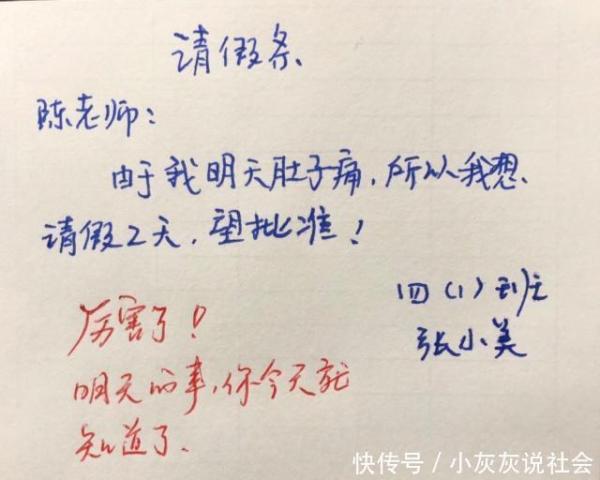 请假条
陈老师：
由于我明天肚子痛，所以我想
请假2天，望批准！
四（1）班
张小美
厉害了！
明天的事，你今天就
知道了.
快传号／小灰灰说社会